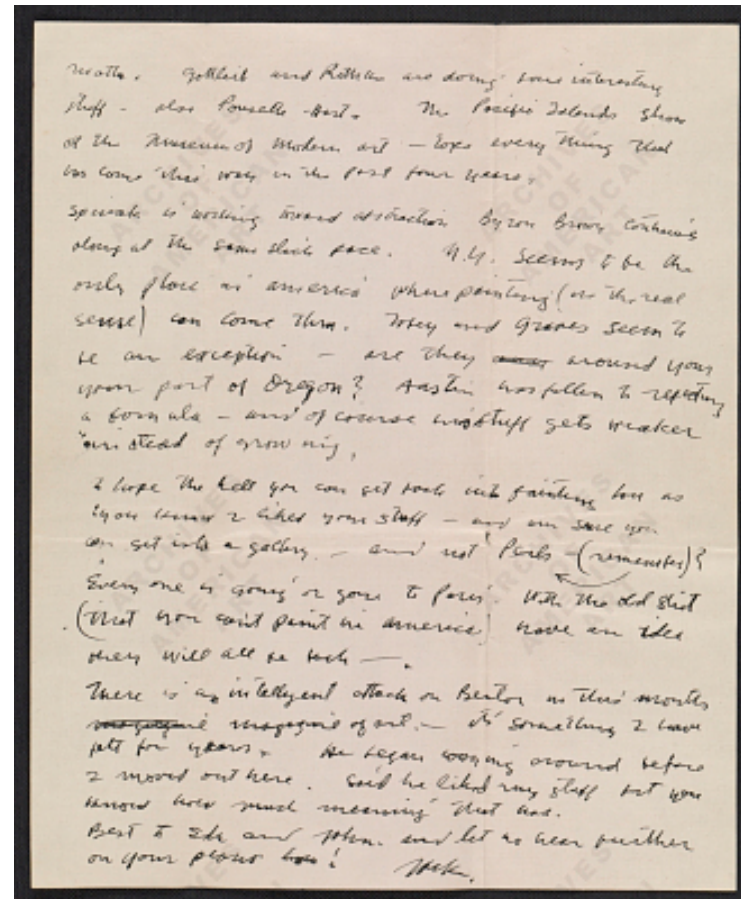 worth. Gottlieb and Rothko are doing some interesting
stuff – also Pousette-Dart. The Pacific Islands show
at the Museum of Modern art – tops every thing that
has come this way in the past four years.
Spivak is working toward abstraction Byron Brown continues
along at the same slick pace. N.Y. seems to be the
only place in america where painting (in the real
sense) can come thru. Tobey and Graves seem to
be an exception – are they around your
your part of Oregon? has fallen to repeating
a formula – and of course his stuff gets weaker
instead of growing.
I hope the hell you can get back into painting Lou as
you know I liked your stuff – and am sure you
can get into a gallery – and not Perls – (remember)?
Every one is going or gone to Paris. With the old shit
(that you can't paint in america) have an idea
they will all be back —.
There is an intelligent attack on Benton in this months
magazine of art – it's something I have
felt for years. He began coming around before
I moved out here. Said he liked my stuff but you
know how much meaning that has.
Best to Ede and John. and let us hear further
on your plans Lou!
Jack.
ARCHIVES
OF
AMERICAN
ART